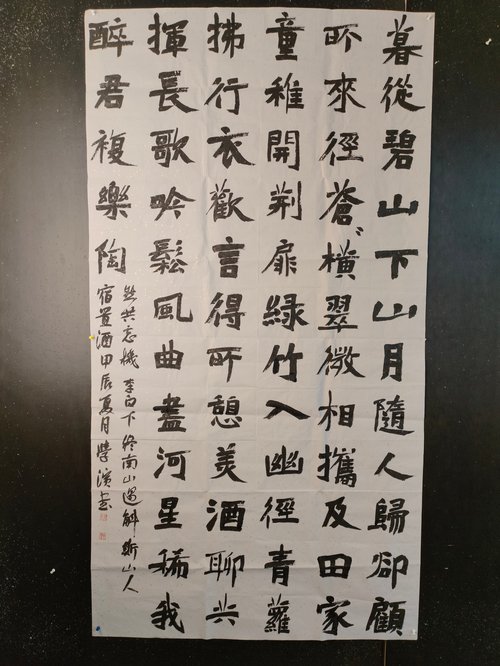 暮從碧山下山月隨人歸卻顧
所來徑蒼〻橫翠微相攜及田家
童稚開荊扉綠竹入幽徑青蘿
拂行衣歡言得所憩美酒聊共
揮長歌吟鬆風曲盡河星稀我
醉君複樂陶
然共忘機李白下終南山過斛斯山人
宿置酒甲辰夏月學濱书